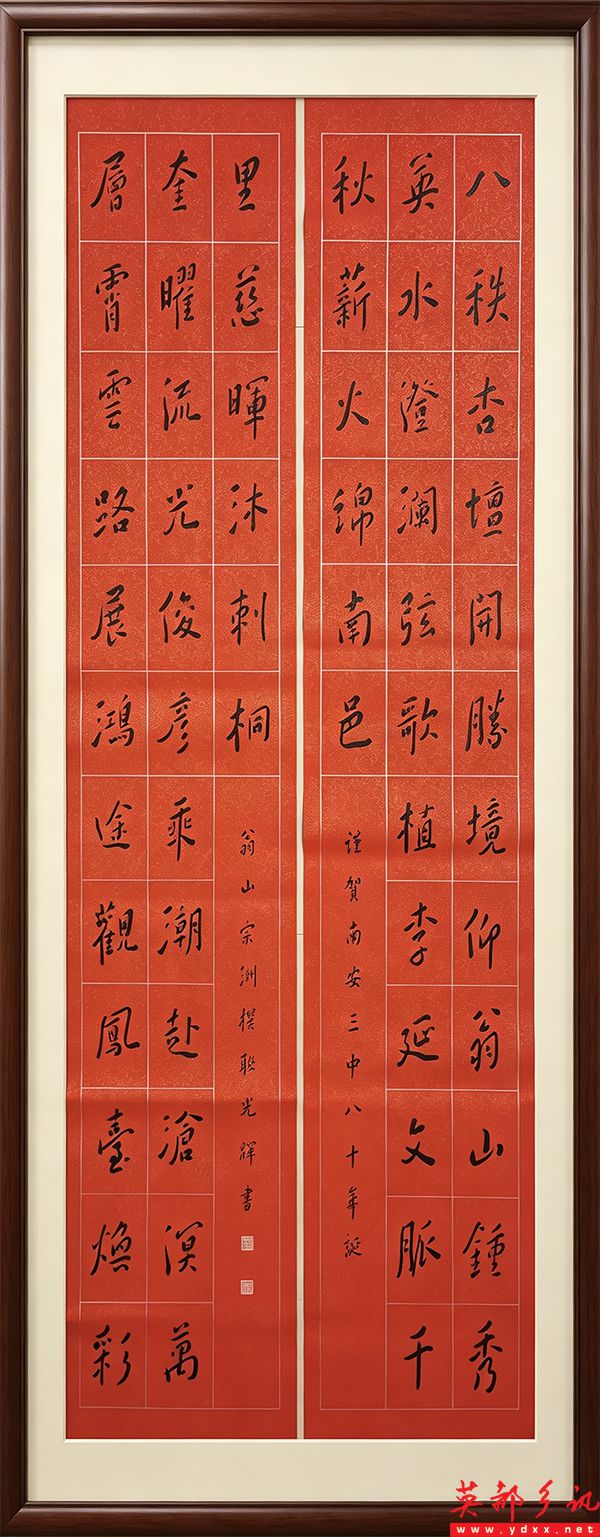 八秩杏壇開勝境仰翁山鍾秀
英水澄瀾弦歌植李延文脈千
秋薪火綿南邑
謹賀南安三中八十年誕
層霄雲路展鴻途觀鳳臺煥彩
奎曜流光俊彥乘潮赴滄溟萬
里慈暉沐刺桐
翁山宗洲撰聯光輝書
英都乡讯
www.ydxx.net